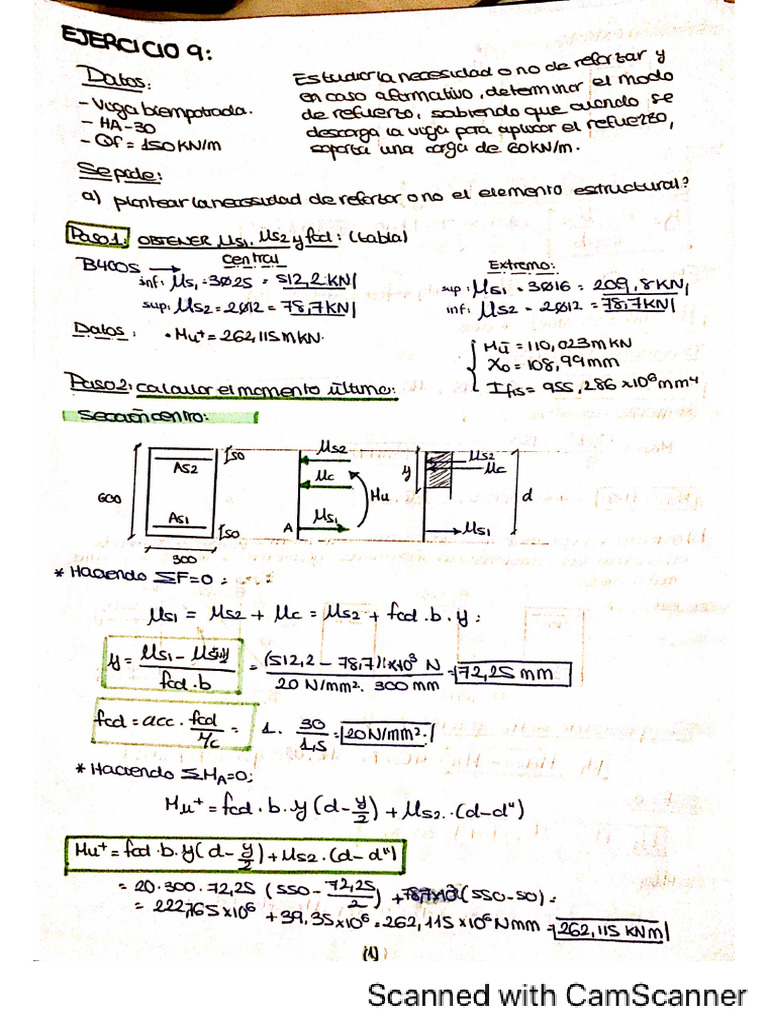 EJERCICIO 9:
Datos:
- Viga biempotrada.
- HA-30
- Qf = 150 KN/m
Estudiar la necesidad o no de reforzar y
en caso afirmativo, determinar el modo
de refuerzo, sabiendo que cuando se
descarga la viga para aplicar el refuerzo,
soporta una carga de 60KN/m.
Se pide:
a) plantear la necesidad de reforzar o no el elemento estructural?
Paso 1: OBTENER Us1, Us2 y fcd: (tabla)
B400S → central
inf: Us1 = 3Ø25 = 512,2 KN
sup: Us2 = 2Ø12 = 78,7KN
Extremo:
sup: Us1 = 3Ø16 = 209,8KN
inf: Us2 = 2Ø12 = 78,7KN
Datos: • Mu+ = 262,115 mKN.
Mu- = 110,023mKN
X0 = 108,99mm
Ifis = 955,286 x10⁶mm⁴
Paso 2: calcular el momento último:
Sección centro:
600
As2
As1
300
I50
I50
Us2
Uc
Us1
A
Mu
y
Us2
Uc
Us1
d
* Haciendo ΣF=0:
Us1 = Us2 + Uc = Us2 + fcd.b.y:
y = (Us1 - Us2) / (fcd.b) = (512,2 - 78,7)x10³ N / (20 N/mm². 300 mm) = 72,25 mm
fcd = acc . fcd / γc = 1. 30 / 1,5 = 20N/mm².
* Haciendo ΣMA=0;
Mu+ = fcd . b . y (d - y/2) + Us2. (d-d")
Mu+ = fcd . b. y( d - y/2 ) + Us2 . (d-d")
= 20.300.72,25 (550 - 72,25/2) + 78,7x10³(550-50) =
= 222,765x10⁶ + 39,35x10⁶ = 262,115x10⁶Nmm = 262,115 KNm
(1)
Scanned with CamScanner